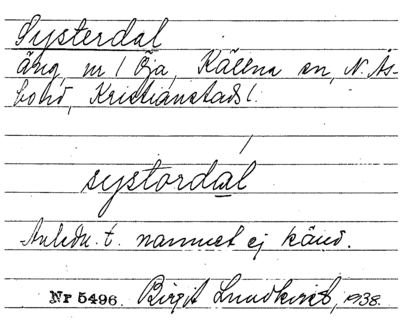 Systerdal
äng, nr 1 Öja, Källna sn, N. Ås-
bo hd, Kristianstads l.
systərdal
Anledn. t. namnet ej känd.
Nr 5496. Birgit Lundkvist, 1938.